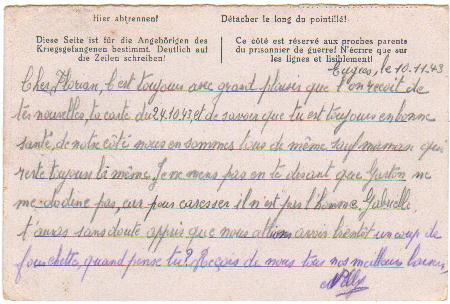 Hier abtrennen! Détacher le long du pointillé!
Diese Seite ist für die Angehörigen des Kriegsgefangenen bestimmt. Deutlich auf die Zeilen schreiben!
Ce côté est réservé aux proches parents du prisonnier de guerre! N'écrire que sur les lignes et lisiblement!
le 10.11.43
Cher Florian, C'est toujours avec grand plaisir que l'on reçoit de
tes nouvelles, ta carte du 24.10.43, et de savoir que tu est toujours en bonne
santé, de notre côté nous en sommes tous de même sauf maman qui
reste toujours là même. Je ne mens pas en te disant que Gaston ne
me dodine pas, car pour caresser il n'est pas l'homme. Gabrielle
t'auras sans doute appris que nous allions avoir bientôt un coup de
fourchette, quand pense tu? Reçois de nous tous nos meilleurs baisers,
Nelly